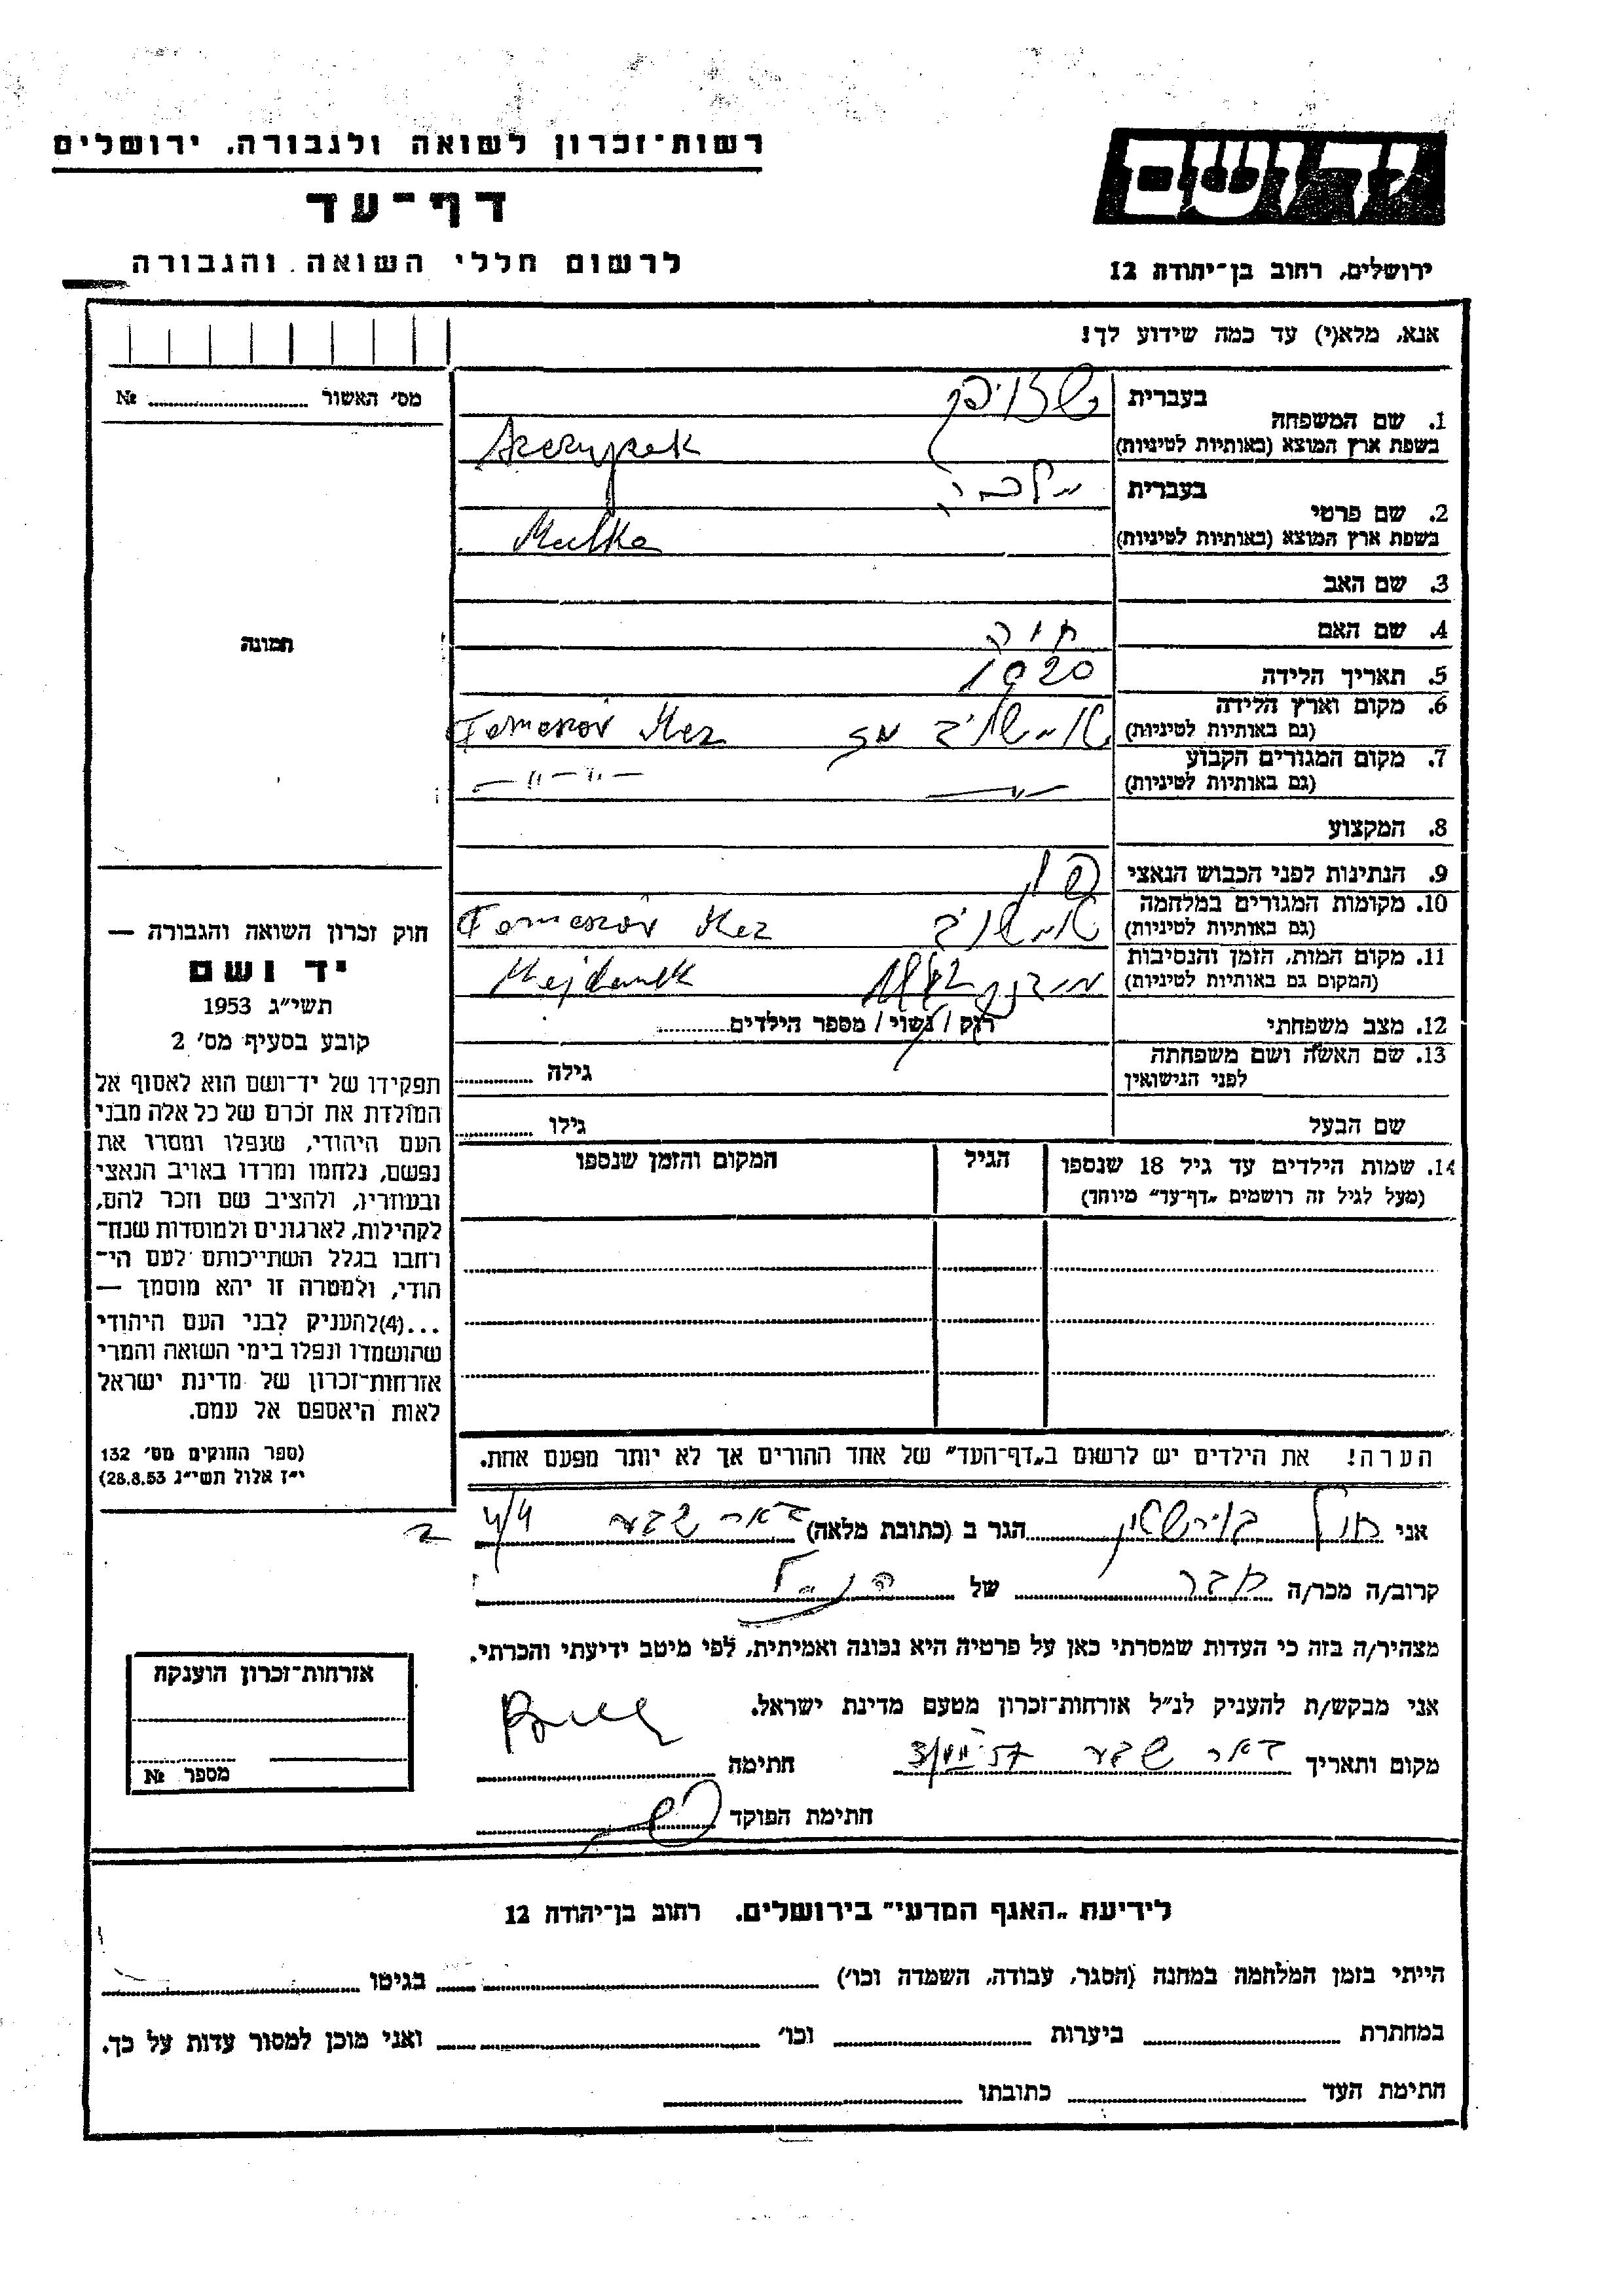 רשות־זכרון לשואה ולגבורה, ירושלים
דף־עד
לרשום חללי השואה והגבורה
יד ושם
ירושלים, רחוב בן־יהודה 12
אנא, מלא(י) עד כמה שידוע לך!
מס׳ האשור № 
תמונה
1. שם המשפחה
בעברית
בשפת ארץ המוצא (באותיות לטיניות)
2. שם פרטי
בעברית מלכה
בשפת ארץ המוצא (באותיות לטיניות) Malka
3. שם האב
4. שם האם חיה
5. תאריך הלידה 1920
6. מקום וארץ הלידה
(גם באותיות לטיניות) Tomaszów Maz
7. מקום המגורים הקבוע
(גם באותיות לטיניות) — " — " —
8. המקצוע
9. הנתינות לפני הכבוש הנאצי
10. מקומות המגורים במלחמה
(גם באותיות לטיניות) Tomaszów Maz
11. מקום המות, הזמן והנסיבות
(המקום גם באותיות לטיניות) Majdanek
12. מצב משפחתי רוק / נשוי / מספר הילדים
13. שם האשה ושם משפחתה
לפני הנישואין
גילה
שם הבעל גילו
14. שמות הילדים עד גיל 18 שנספו
(מעל לגיל זה רושמים „דף־עד" מיוחד)
הגיל
המקום והזמן שנספו
הערה! את הילדים יש לרשום ב„דף־העד" של אחד ההורים אך לא יותר מפעם אחת.
חוק זכרון השואה והגבורה —
יד ושם
תשי״ג 1953
קובע בסעיף מס׳ 2
תפקידו של יד־ושם הוא לאסוף אל
המולדת את זכרם של כל אלה מבני
העם היהודי, שנפלו ומסרו את
נפשם, נלחמו ומרדו באויב הנאצי
ובעוזריו, ולהציב שם וזכר להם,
לקהילות, לארגונים ולמוסדות שנח־
רחבו בגלל השתייכותם לעם הי־
הודי, ולמטרה זו יהא מוסמך —
...(4)להעניק לבני העם היהודי
שהושמדו ונפלו בימי השואה והמרי
אזרחות־זכרון של מדינת ישראל
לאות היאספם אל עמם.
(ספר החוקים מס׳ 132
י״ז אלול תשי״ג 28.8.53)
אני הגר ב (כתובת מלאה) באר שבע
קרוב/ה מכר/ה מכר של הנ״ל
מצהיר/ה בזה כי העדות שמסרתי כאן על פרטיה היא נכונה ואמיתית, לפי מיטב ידיעתי והכרתי.
אני מבקש/ת להעניק לנ״ל אזרחות־זכרון מטעם מדינת ישראל.
מקום ותאריך באר שבע חתימה
חתימת הפוקד
אזרחות־זכרון הוענקה
מספר №
לידיעת „האגף המדעי" בירושלים, רחוב בן־יהודה 12
הייתי בזמן המלחמה במחנה (הסגר, עבודה, השמדה וכו׳) בגיטו
במחתרת ביערות וכו׳ ואני מוכן למסור עדות על כך.
חתימת העד כתובתו